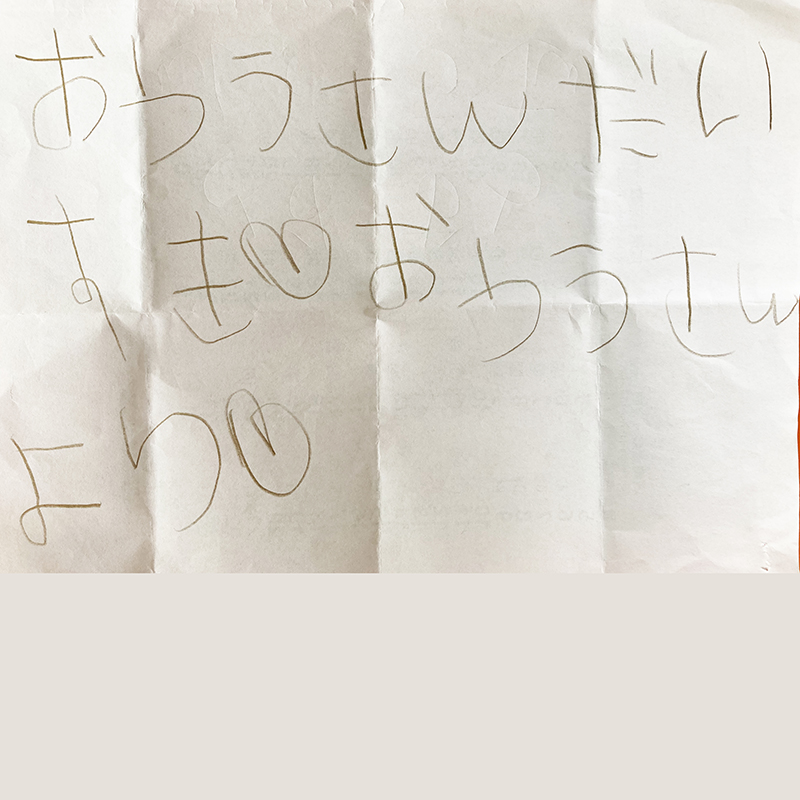 おとうさんだい
すき♡おとうさん
より♡